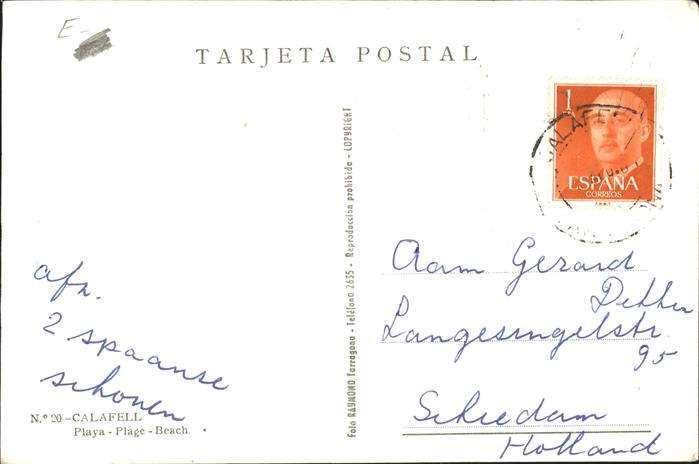 E-
TARJETA POSTAL
1
ESPAÑA
CORREOS
CALAFELL
Foto RAYMOND Tarragona - Teléfono 2635 - Reproducción prohibida - COPYRIGHT
afz.
2 spaanse
schonen
Aam Gerard
Dekker
Langesingelstr.
95
Schiedam
Holland
N.º 20 - CALAFELL
Playa - Plage - Beach.